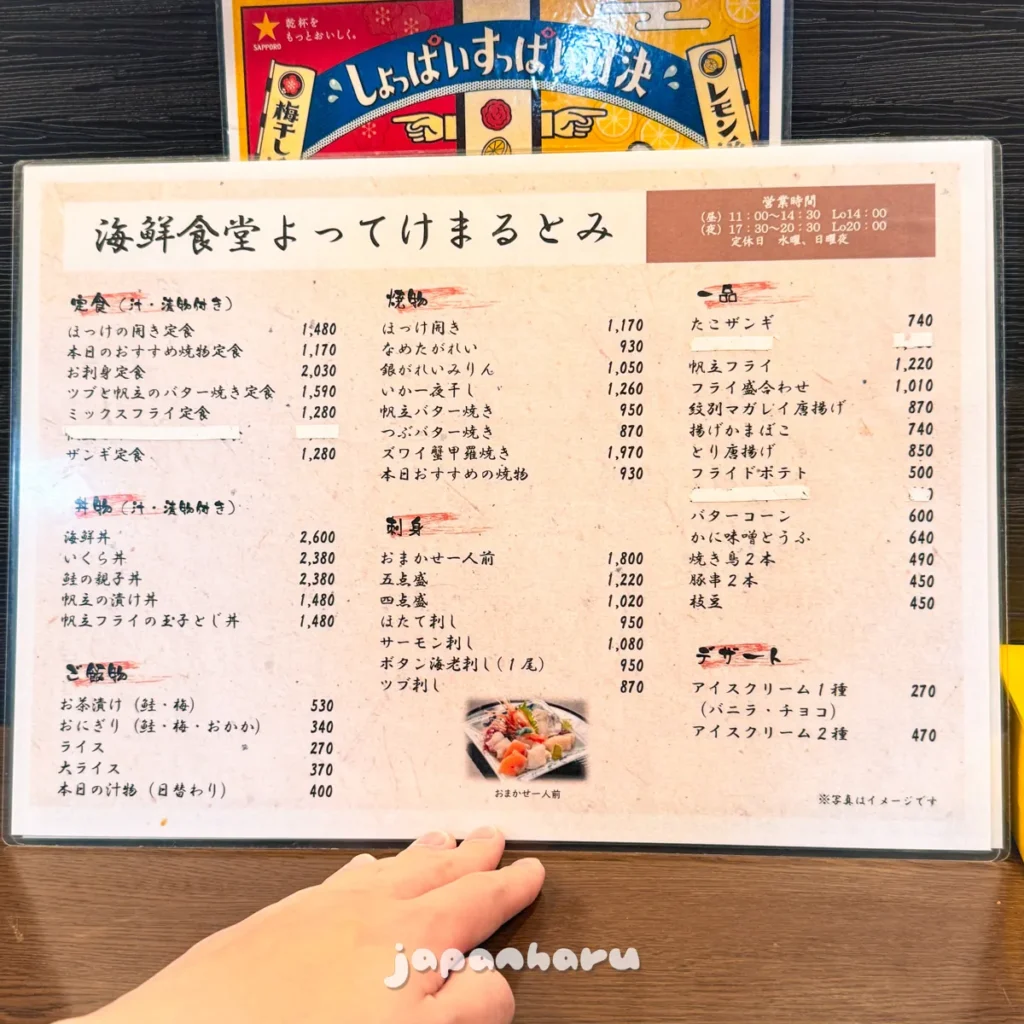 SAPPORO
乾杯を
もっとおいしく。
しょっぱいすっぱい対決
梅干し
レモン
海鮮食堂よってけまるとみ
営業時間
(昼) 11:00〜14:30 Lo14:00
(夜) 17:30〜20:30 Lo20:00
定休日 水曜、日曜夜
定食(汁・漬物付き)
ほっけの開き定食 1,480
本日のおすすめ焼物定食 1,170
お刺身定食 2,030
ツブと帆立のバター焼き定食 1,590
ミックスフライ定食 1,280
ザンギ定食 1,280
丼物(汁・漬物付き)
海鮮丼 2,600
いくら丼 2,380
鮭の親子丼 2,380
帆立の漬け丼 1,480
帆立フライの玉子とじ丼 1,480
ご飯物
お茶漬け(鮭・梅) 530
おにぎり(鮭・梅・おかか) 340
ライス 270
大ライス 370
本日の汁物(日替わり) 400
焼物
ほっけ開き 1,170
なめたがれい 930
銀がれいみりん 1,050
いか一夜干し 1,260
帆立バター焼き 950
つぶバター焼き 870
ズワイ蟹甲羅焼き 1,970
本日おすすめの焼物 930
刺身
おまかせ一人前 1,800
五点盛 1,220
四点盛 1,020
ほたて刺し 950
サーモン刺し 1,080
ボタン海老刺し(1尾) 950
ツブ刺し 870
おまかせ一人前
一品
たこザンギ 740
帆立フライ 1,220
フライ盛合わせ 1,010
紋別マガレイ唐揚げ 870
揚げかまぼこ 740
とり唐揚げ 850
フライドポテト 500
バターコーン 600
かに味噌とうふ 640
焼き鳥2本 490
豚串2本 450
枝豆 450
デザート
アイスクリーム1種 270
(バニラ・チョコ)
アイスクリーム2種 470
※写真はイメージです
japanharu